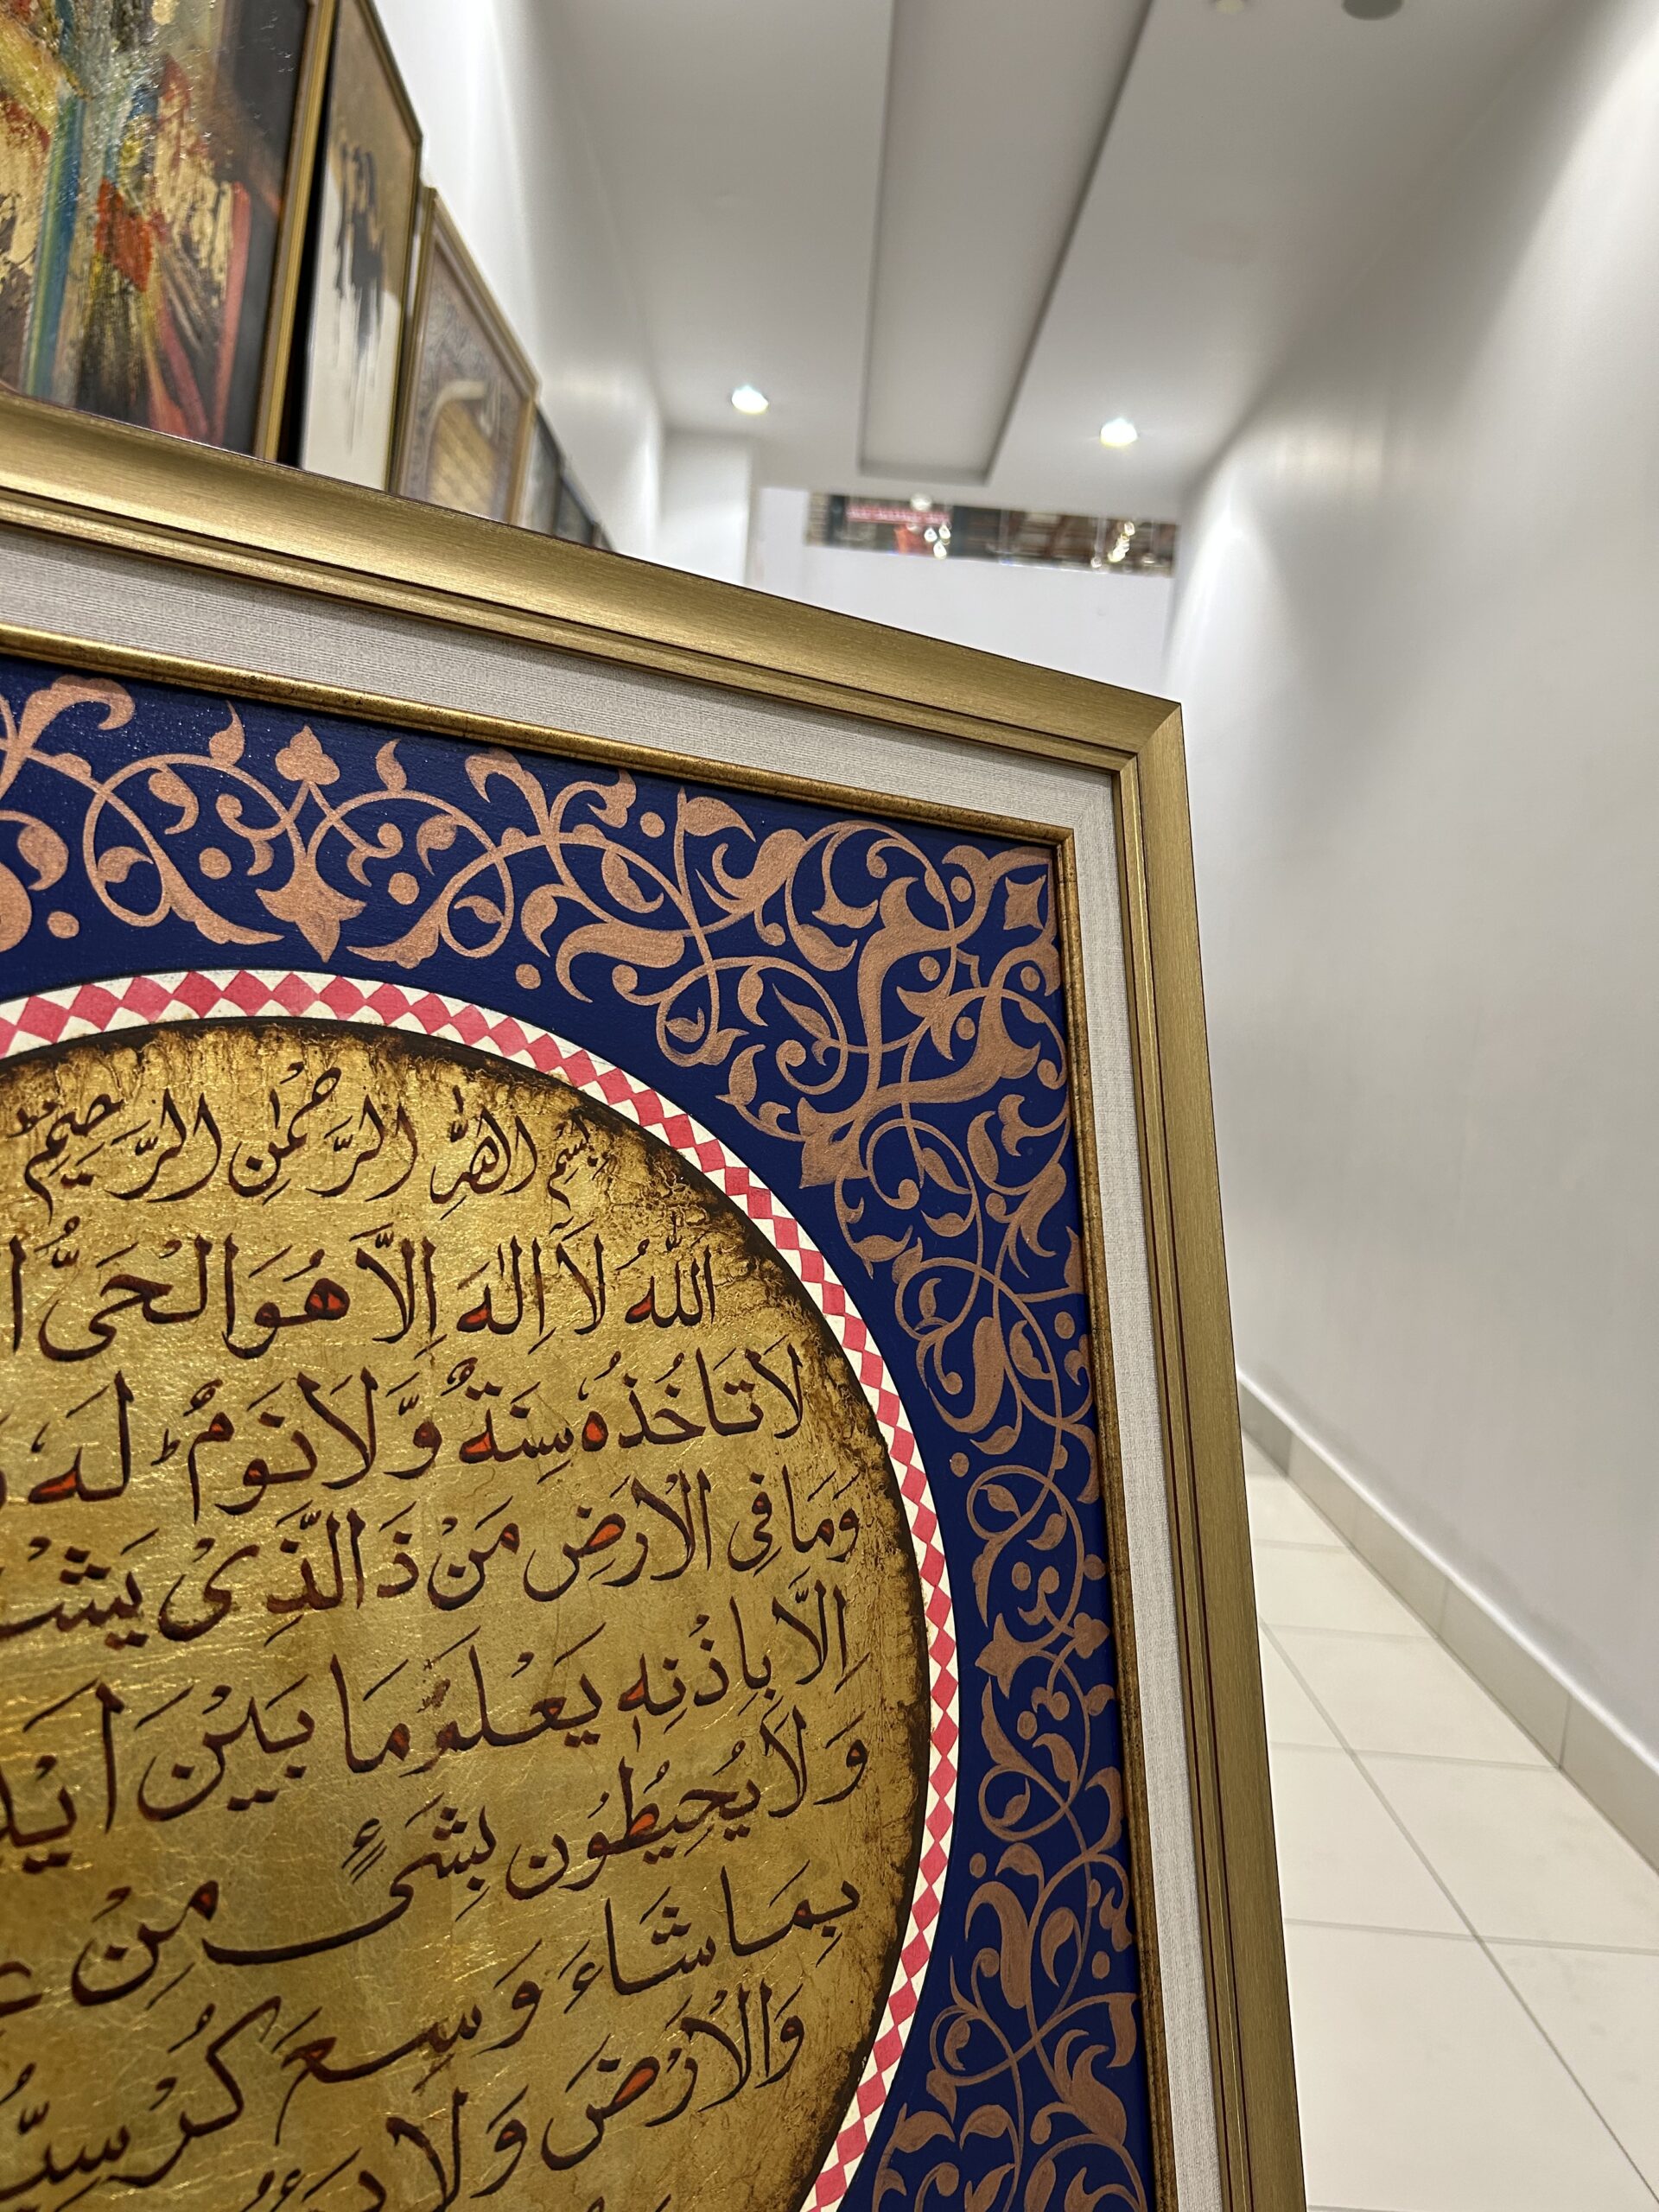 بِسْمِ اللهِ الرَّحْمٰنِ الرَّحِيْمِ
اَللهُ لَآ اِلٰهَ اِلَّا هُوَ الْحَىُّ
لَا تَاْخُذُهٗ سِنَةٌ وَّلَا نَوْمٌ لَهٗ
وَمَا فِى الْاَرْضِ مَنْ ذَا الَّذِىْ
اِلَّا بِاِذْنِهٖ يَعْلَمُ مَا بَيْنَ
وَلَا يُحِيْطُوْنَ بِشَىْءٍ مِنْ
بِمَا شَاءَ وَسِعَ
وَالْاَرْضَ وَلَا